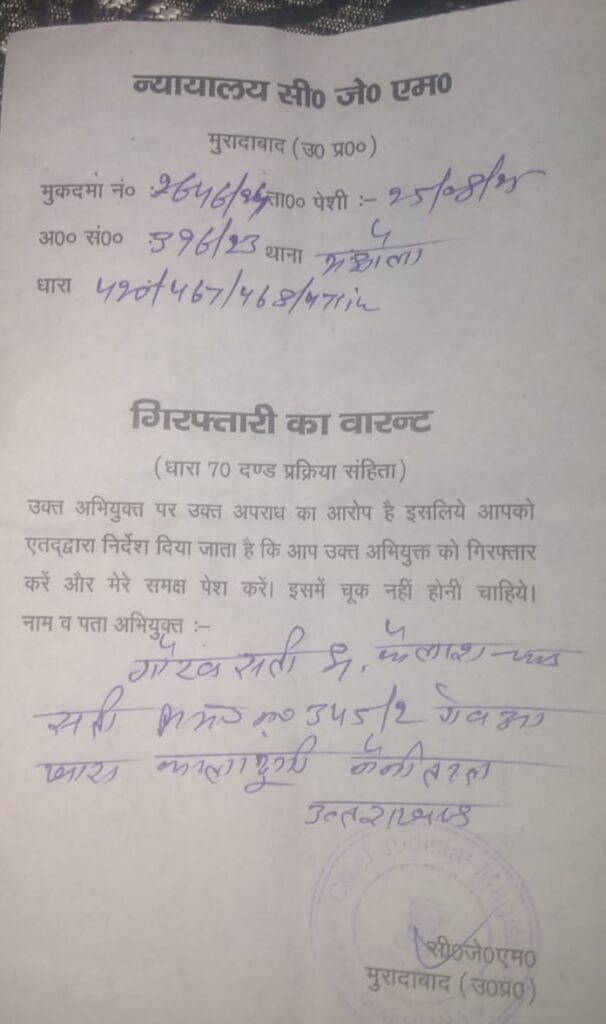 न्यायालय सी० जे० एम०
मुरादाबाद (उ० प्र००)
मुकदमा नं० :2646/24 ता०० पेशी :- 25/08/25
अ०० सं०० :396/23 थाना मझोला
धारा 420/467/468/471
गिरफ्तारी का वारन्ट
(धारा 70 दण्ड प्रक्रिया संहिता)
उक्त अभियुक्त पर उक्त अपराध का आरोप है इसलिये आपको
एतद्द्वारा निर्देश दिया जाता है कि आप उक्त अभियुक्त को गिरफ्तार
करें और मेरे समक्ष पेश करें। इसमें चूक नहीं होनी चाहिये।
नाम व पता अभियुक्त :-
गौरव सती कैलाश चन्द
सती म०न० 345/2
कालाढूंगी नैनीताल
उत्तराखण्ड
Chief Judicial Magis
सी०जे०एम०
मुरादाबाद (उ०प्र०)